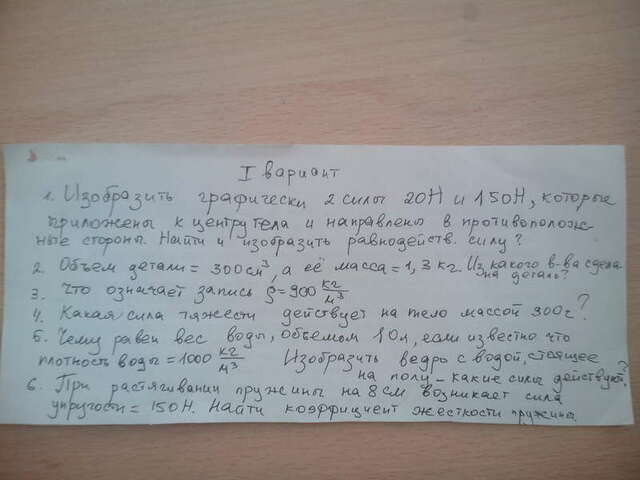 I вариант
1. Изобразить графически 2 силы 20Н и 150Н, которые
приложены к центру тела и направлены в противополож-
ные стороны. Найти и изобразить равнодейств. силу?
2. Объем детали = 300см³, а её масса = 1,3 кг. Из какого в-ва сдела-
на деталь?
3. Что означает запись ρ=900 кг/м³
4. Какая сила тяжести действует на тело массой 300г?
5. Чему равен вес воды, объемом 10л, если известно что
плотность воды = 1000 кг/м³ Изобразить ведро с водой, стоящее
на полу – какие силы действуют?
6. При растягивании пружины на 8см возникает сила
упругости = 150Н. Найти коэффициент жесткости пружины.